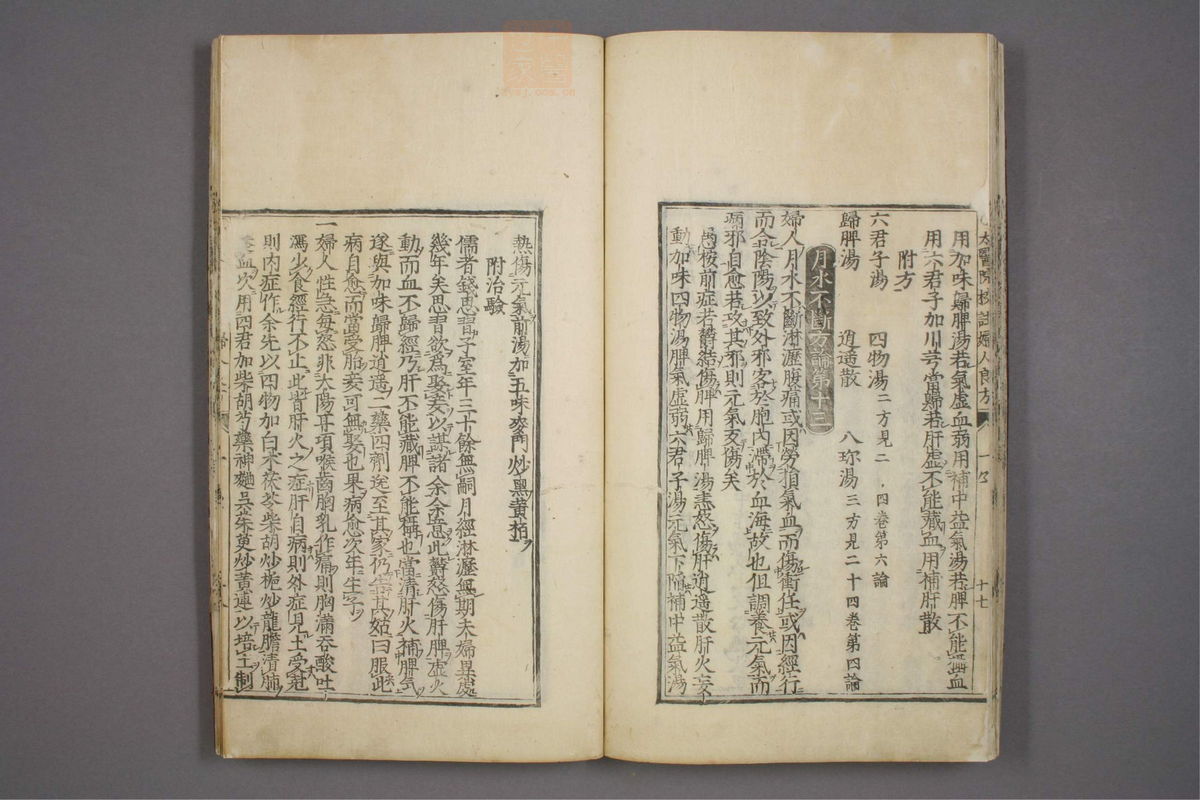 太醫院校註婦人良方
十七
用加味歸脾湯若氣虛血弱用補中益氣湯若脾不能攝血
用六君子加川芎當歸若肝虛不能藏血用補肝散
附方
六君子湯 四物湯二方見二十四卷第六論
歸脾湯 逍遙散 八珍湯三方見二十四卷第四論
月水不斷方論第十三
婦人月水不斷淋瀝腹痛或因勞損氣血而傷衝任或因經行
而合陰陽以致外邪客於胞內滯於血海故也但調養元氣而
病邪自愈若攻其邪則元氣反傷矣
愚按前症若鬱結傷脾用歸脾湯恚怒傷肝逍遙散肝火妄
動加味四物湯脾氣虛弱六君子湯元氣下陷補中益氣湯
熱傷元氣前湯加五味麥門炒黑黃栢
附治驗
儒者錢思習子室年三十餘無嗣月經淋瀝無期夫婦異處
幾年矣思習欲為娶妾以謀諸余余意此鬱怒傷肝脾虛火
動而血不歸經乃肝不能藏脾不能攝也當清肝火補脾氣
遂與加味歸脾逍遙二藥四劑送至其家仍告其姑曰服此
病自愈而當受胎妾可無娶也果病愈次年生子
一婦人性急每怒非太陽耳項喉齒胸乳作痛則胸滿吞酸吐
瀉少食經行不止此皆肝火之症肝自病則外症見土受剋
則內症作余先以四物加白朮茯苓柴胡炒梔炒龍膽清肺
養血次用四君加柴胡芍藥神麯吳茱萸炒黃連以培土制